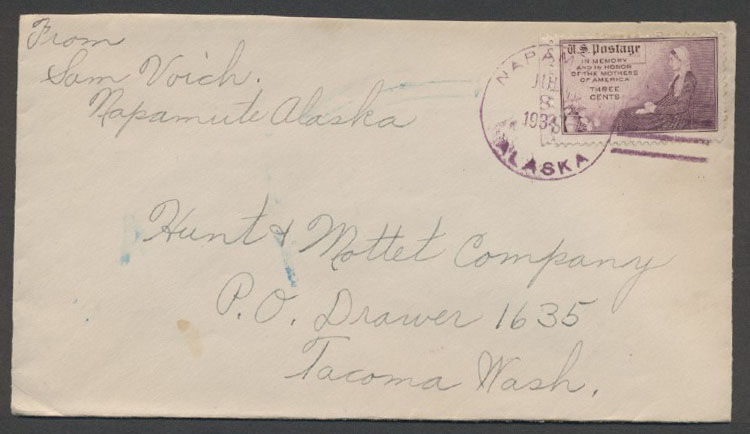 From
Sam Voich.
Napamute Alaska
NAPAMU
8
1934
ALASKA
U.S. Postage
IN MEMORY
AND IN HONOR
OF THE MOTHERS
OF AMERICA
THREE
CENTS
Hunt & Mottet Company
P.O. Drawer 1635
Tacoma Wash.